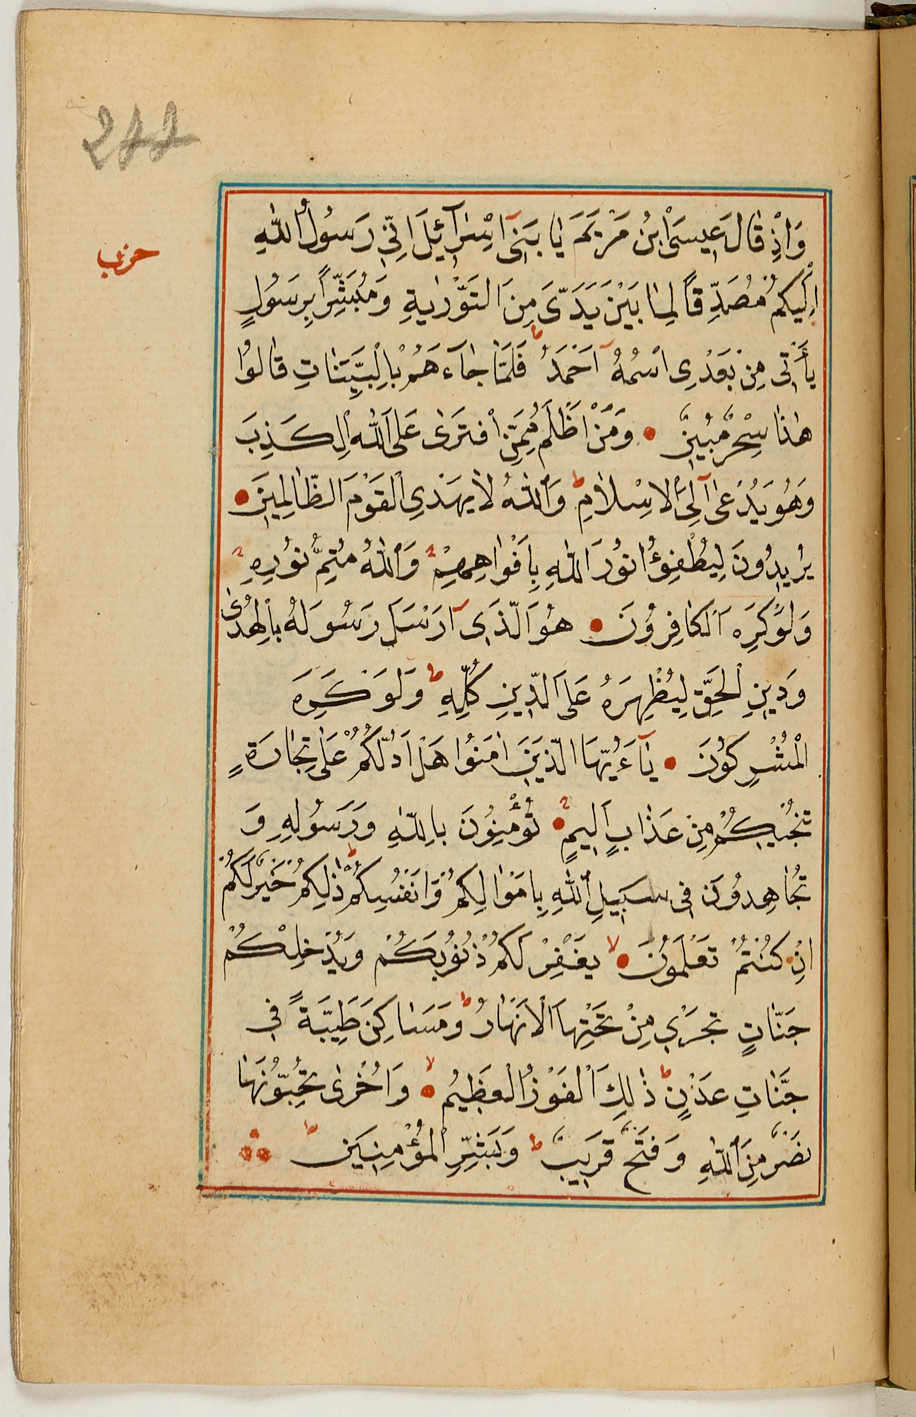 277
حزب
وَاِذْ قَالَ عِيسَى ابْنُ مَرْيَمَ يَا بَنِٓى اِسْرَٓائِلَ اِنِّى رَسُولُ اللّٰهِ
اِلَيْكُمْ مُصَدِّقًا لِمَا بَيْنَ يَدَىَّ مِنَ التَّوْرٰيةِ وَمُبَشِّرًا بِرَسُولٍ
يَأْتِى مِنْ بَعْدِى اسْمُهُٓ اَحْمَدُ ط فَلَمَّا جَٓاءَهُمْ بِالْبَيِّنَاتِ قَالُوا
هٰذَا سِحْرٌ مُبِينٌ وَمَنْ اَظْلَمُ مِمَّنِ افْتَرٰى عَلَى اللّٰهِ الْكَذِبَ
وَهُوَ يُدْعٰٓى اِلَى الْاِسْلَامِ ط وَاللّٰهُ لَا يَهْدِى الْقَوْمَ الظَّالِمِينَ
يُرِيدُونَ لِيُطْفِؤُا نُورَ اللّٰهِ بِاَفْوَاهِهِمْ وَاللّٰهُ مُتِمُّ نُورِهِ
وَلَوْ كَرِهَ الْكَافِرُونَ هُوَ الَّذِٓى اَرْسَلَ رَسُولَهُ بِالْهُدٰى
وَدِينِ الْحَقِّ لِيُظْهِرَهُ عَلَى الدِّينِ كُلِّهِ ط وَلَوْ كَرِهَ
الْمُشْرِكُونَ يَٓاءَيُّهَا الَّذِينَ اٰمَنُوا هَلْ اَدُلُّكُمْ عَلٰى تِجَارَةٍ
تُنْجِيكُمْ مِنْ عَذَابٍ اَلِيمٍ تُؤْمِنُونَ بِاللّٰهِ وَرَسُولِهِ وَ
تُجَاهِدُونَ فِى سَبِيلِ اللّٰهِ بِاَمْوَالِكُمْ وَاَنْفُسِكُمْ ط ذٰلِكُمْ خَيْرٌ لَكُمْ
اِنْ كُنْتُمْ تَعْلَمُونَ لا يَغْفِرْ لَكُمْ ذُنُوبَكُمْ وَيُدْخِلْكُمْ
جَنَّاتٍ تَجْرِى مِنْ تَحْتِهَا الْاَنْهَارُ ط وَمَسَاكِنَ طَيِّبَةً فِى
جَنَّاتِ عَدْنٍ ط ذٰلِكَ الْفَوْزُ الْعَظِيمُ لا وَاُخْرٰى تُحِبُّونَهَا
نَصْرٌ مِنَ اللّٰهِ وَفَتْحٌ قَرِيبٌ ط وَبَشِّرِ الْمُؤْمِنِينَ ط